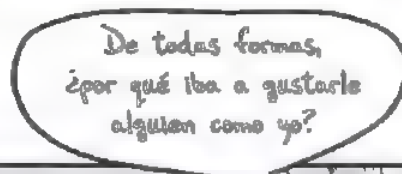 De todas formas,
¿por qué iba a gustarle
alguien como yo?